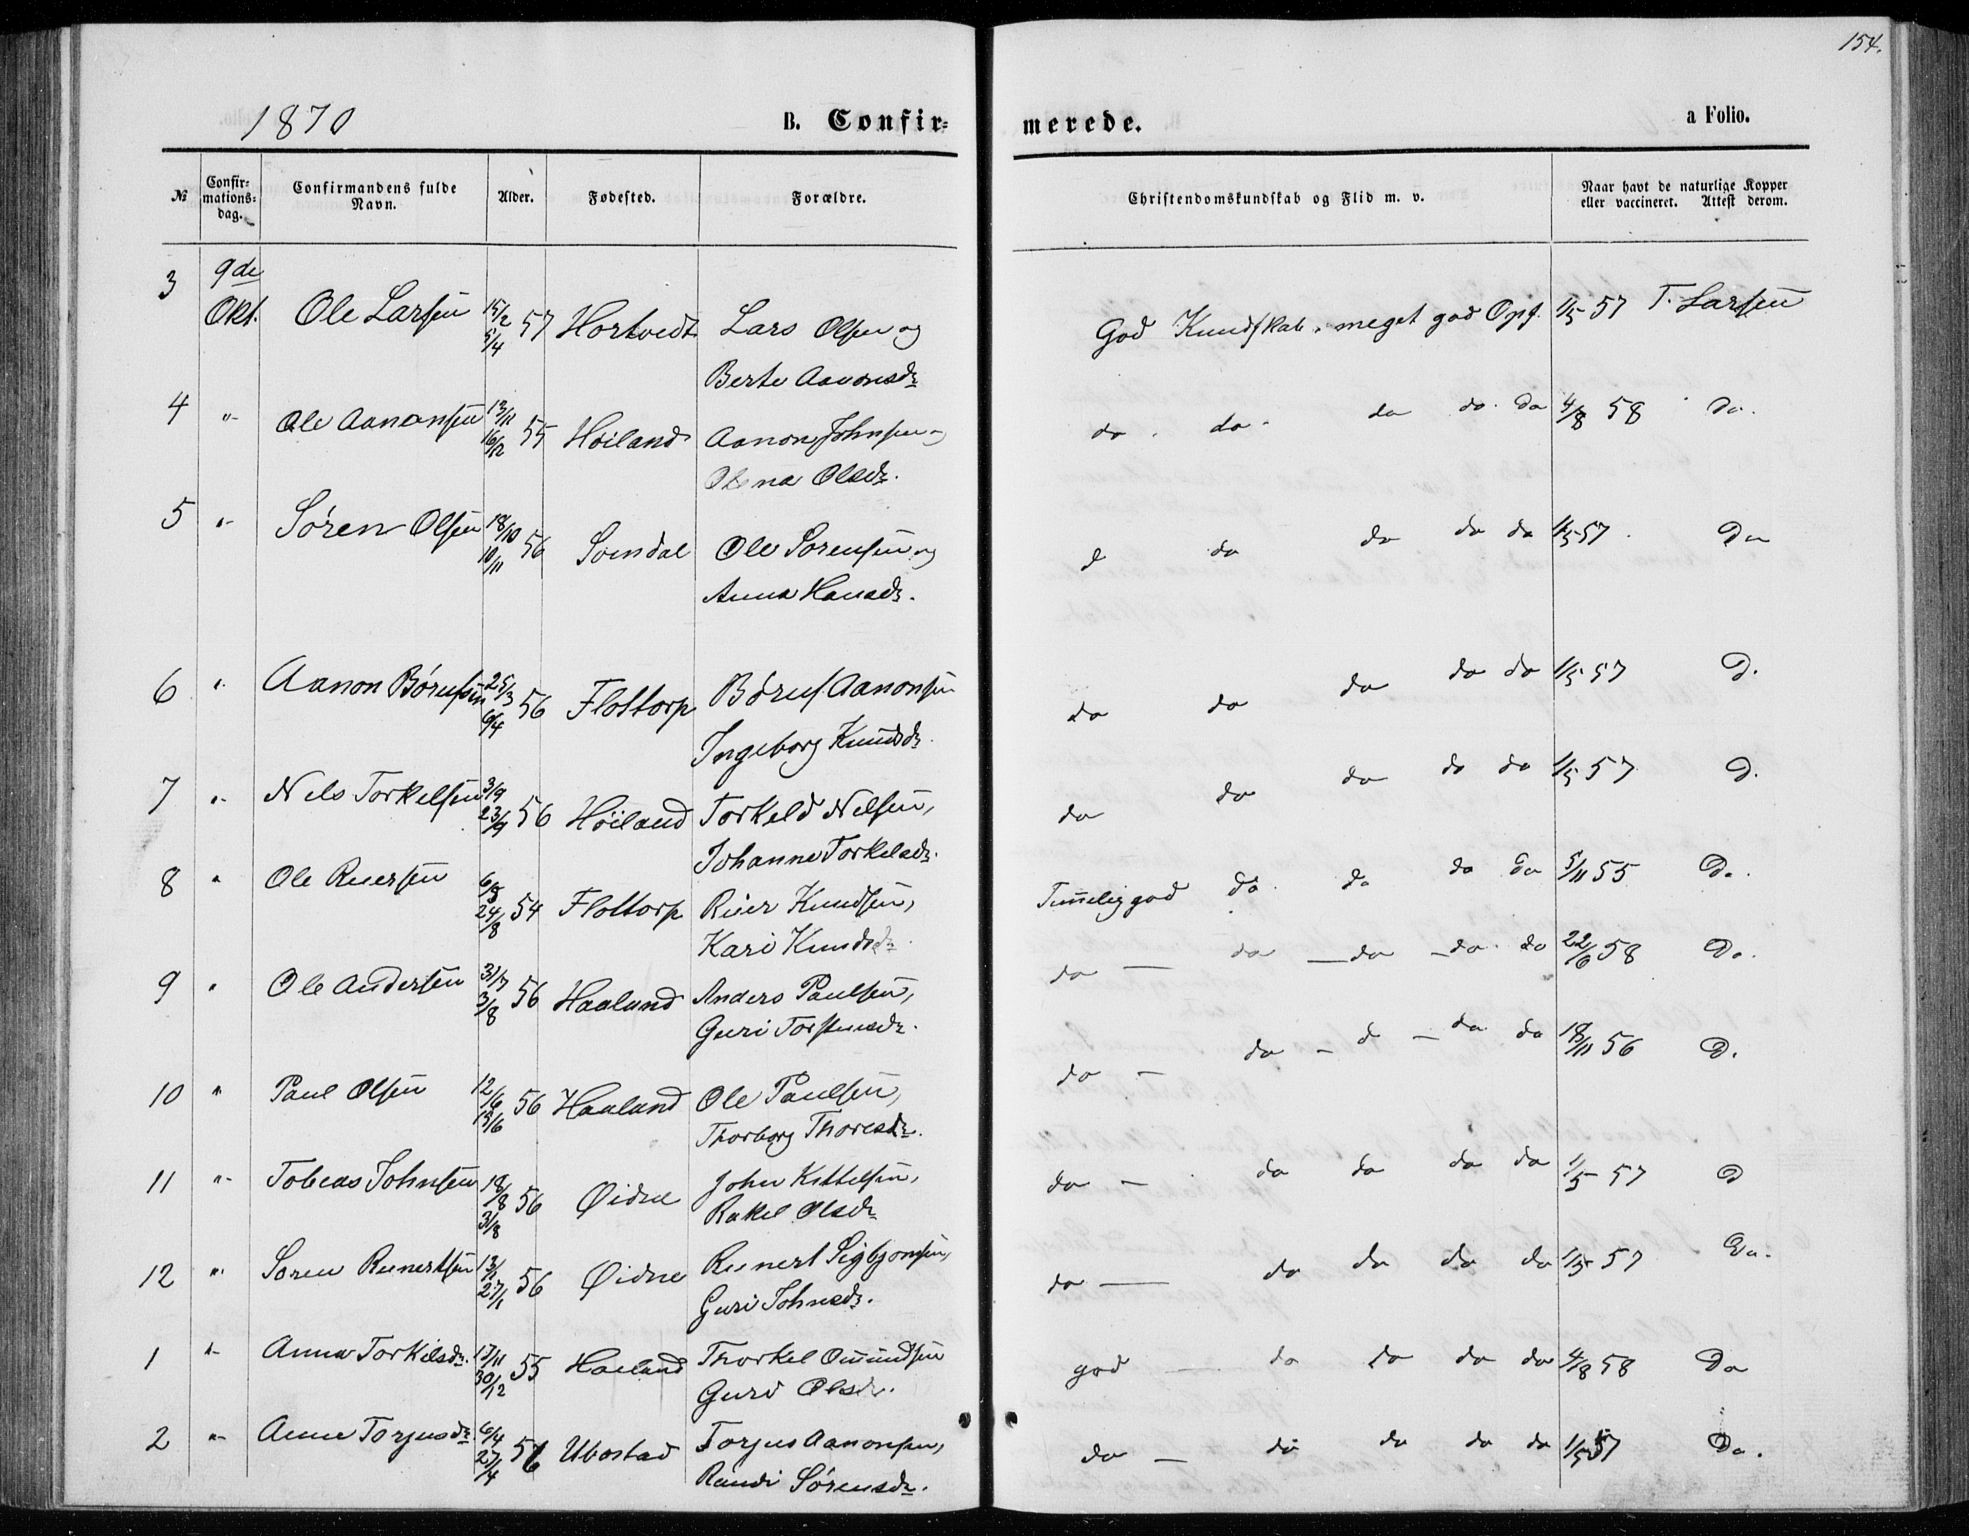 154.
1870 B. Confir= merede. a Folio.
№ Confir=mations=dag. Confirmandens fulde Navn. Alder. Fødested. Forældre. Christendomskundskab og Flid m. v. Naar havt de naturlige Kopper eller vaccineret. Attest derom.
3 9de Okt. Ole Larsen 15/2 5/4 57 Hortvedt Lars Olsen og God Kundskab. meget god Opf. 1/5 57 T. Larsen
Berte Aanonsdr
4 " Ole Aanonsen 13/11 16/12 55 Höiland Aanon Johnsen og do. do. do do. do 4/8 58 do.
Olsdr.
5 " Sören Olsen 18/10 10/11 56 Soendal Ole Sörensen og d do do do do 1/5 57. Do
Anna Hansdr.
6 " Aanon Börufsen 25/3 6/4 56 Flottorp Böruf Aanonsen do do do do do 1/5 57 D.
Ingeborg Knudsdr.
7 " Nels Torkelsen 3/9 23/9 56 Höiland Torkeld Nelsen, do do do do do 1/5 57 D.
Johanne Torkelsdr.
8 " Ole Reiersen 6/8 24/8 54 Flottorp Reier Knudsen, Temelig god do do do do 5/11 55 Do.
Kari Knudsdr.
9 " Ole Andersen 31/7 3/8 56 Haaland Anders Paulsen, do — do — do — do do 22/6 58 Do.
Guri Torstensdr.
10 " Paul Olsen 12/6 13/6 56 Haaland Ole Paulsen, do — do — d — do do 18/11 56 D.
Thorborg Thoresdr.
11 " Tobias Johnsen 18/8 31/8 56 Øidne John Kittelsen, do — do do do do 1/5 57 D
Rakel Olsdr
12 " Sören Reinertsen 13/1 27/1 56 Øidne Reinert Sigbjornsen, do — do do do do 1/5 57 Do.
Guri Johnsdr.
1 " Anna Torkelsdr. 17/11 30/12 55 Haaland Thorkel Omundsen god — do do do do 4/8 58 Do
Guro Olsdr.
2 " Anne Torjusdr 6/4 27/4 56 Ubostad Torjus Aanonsen, do — do do do do 1/5 57 Do.
Randi Sörensdr.